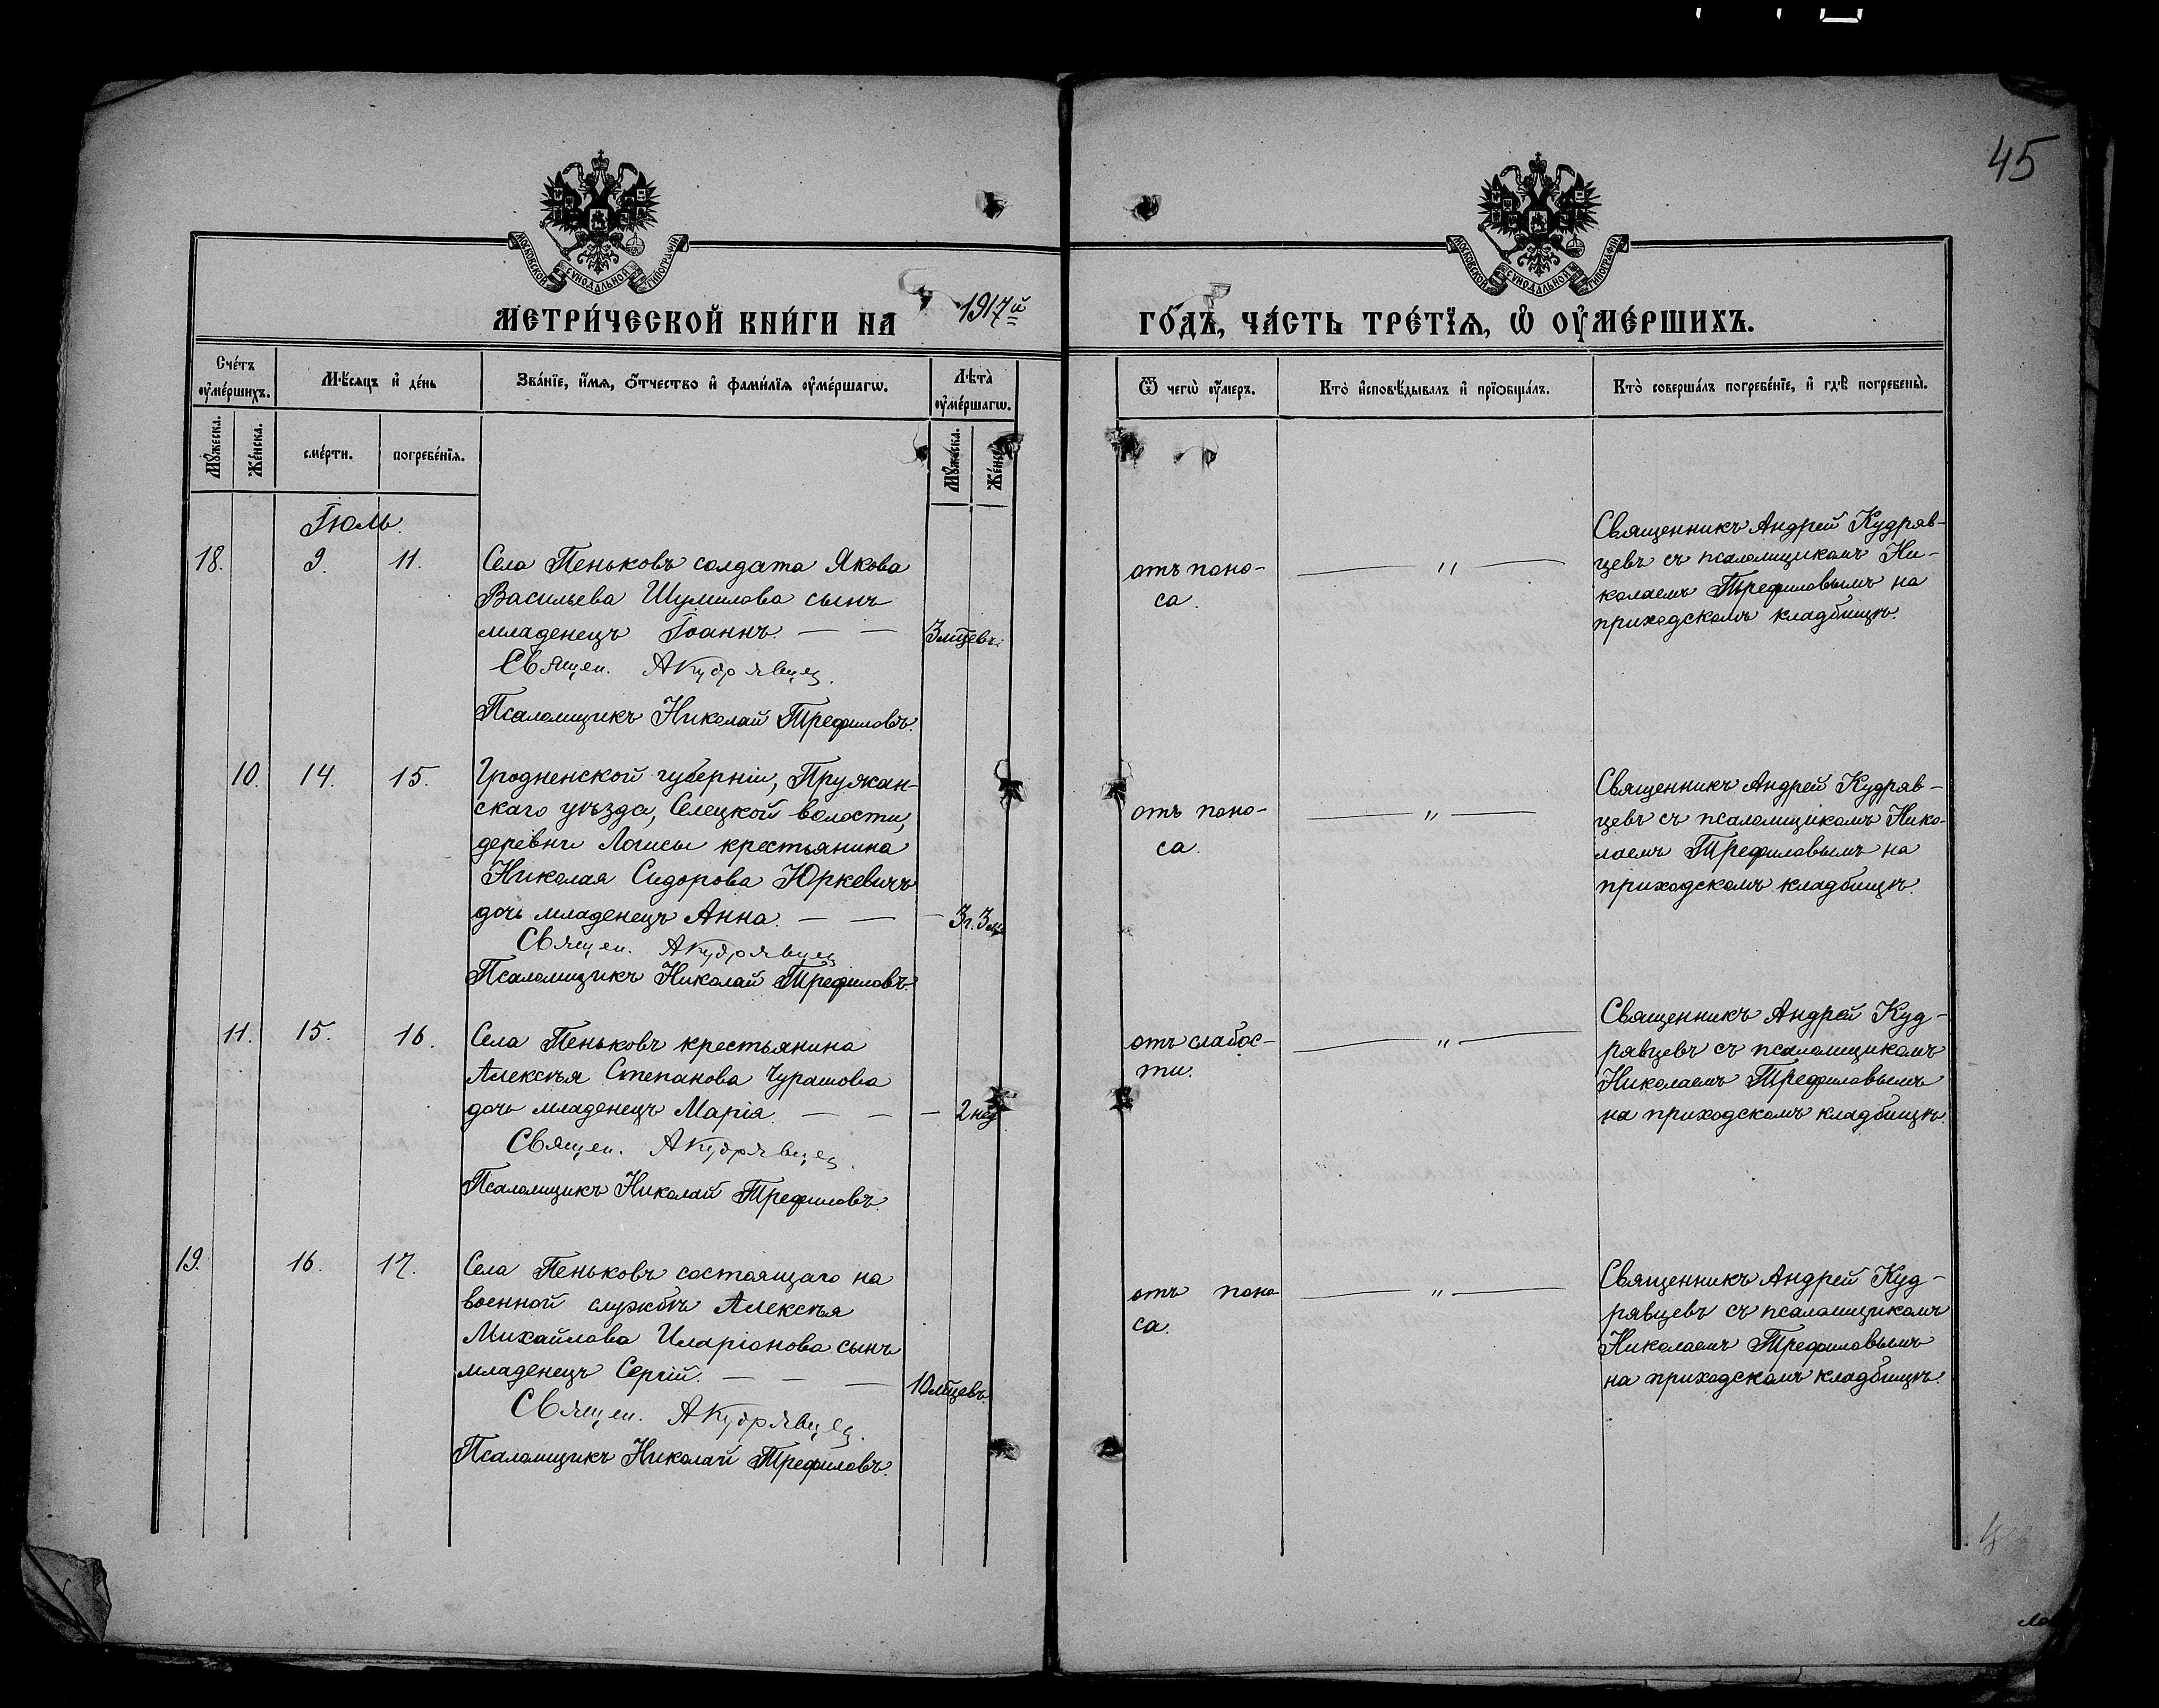 45
МОСКОВСКОЙ СУНОДАЛЬНОЙ ТИПОГРАФІИ
МОСКОВСКОЙ СУНОДАЛЬНОЙ ТИПОГРАФІИ
МЕТРИ́ЧЕСКОЙ КНИ́ГИ НА 1917й ГО́ДЪ, ЧА́СТЬ ТРЕ́ТІѦ, Ѡ҆ ОУ҆МЕ́РШИХЪ.
Сче́тъ оу҆ме́ршихъ.
Мѣ́сяцъ и҆ де́нь
Зва́нїе, и҆́мѧ, ѻ҆́тчество и҆ фами́лїѧ оу҆ме́ршагѡ.
Лѣ́та̀ оу҆ме́ршагѡ.
Ѿ чегѡ̀ оу҆́меръ.
Кто̀ и҆сповѣ́дывалъ и҆ прїѻбща́лъ.
Кто̀ соверша́лъ погребе́нїе, и҆ гдѣ̀ погребены̀.
Мꙋ́жеска.
Же́нска.
сме́рти.
погребе́нїѧ.
Мꙋ́жеска.
Же́нска.
Іюль.
18.
9.
11.
Села Пеньковъ солдата Якова
Васильева Шумилова сынъ
младенецъ Іоаннъ. — —
3 мцевъ.
Священ. АКудрявцев.
Псаломщикъ Николай Трефиловъ.
отъ поно-
са.
— „ —
Священникъ Андрей Кудряв-
цевъ съ псаломщикомъ Ни-
колаемъ Трефиловымъ на
приходскомъ кладбищѣ.
10.
14.
15.
Гродненской губерніи, Пружан-
скаго уѣзда, Селецкой волости,
деревни Логисы крестьянина
Николая Сидорова Юркевичъ
дочь младенецъ Анна. — — —
3 г. 3 м
Священ. АКудрявцев
Псаломщикъ Николай Трефиловъ.
отъ поно-
са.
— „ —
Священникъ Андрей Кудряв-
цевъ съ псаломщикомъ Нико-
лаемъ Трефиловымъ на
приходскомъ кладбищѣ.
11.
15.
16.
Села Пеньковъ крестьянина
Алексѣя Степанова Чурашова
дочь младенецъ Марія. — — —
2 нед
Священ. АКудрявцев.
Псаломщикъ Николай Трефиловъ.
отъ слабос-
ти.
— „ —
Священникъ Андрей Куд-
рявцевъ съ псаломщикомъ
Николаемъ Трефиловымъ
на приходскомъ кладбищѣ.
19.
16.
17.
Села Пеньковъ состоящаго на
военной службѣ Алексѣя
Михайлова Иларіонова сынъ
младенецъ Сергій. — — —
10 мцевъ.
Священ. АКудрявцев.
Псаломщикъ Николай Трефиловъ.
отъ поно
са.
— „ —
Священникъ Андрей Куд-
рявцевъ съ псаломщикомъ
Николаемъ Трефиловымъ
на приходскомъ кладбищѣ.